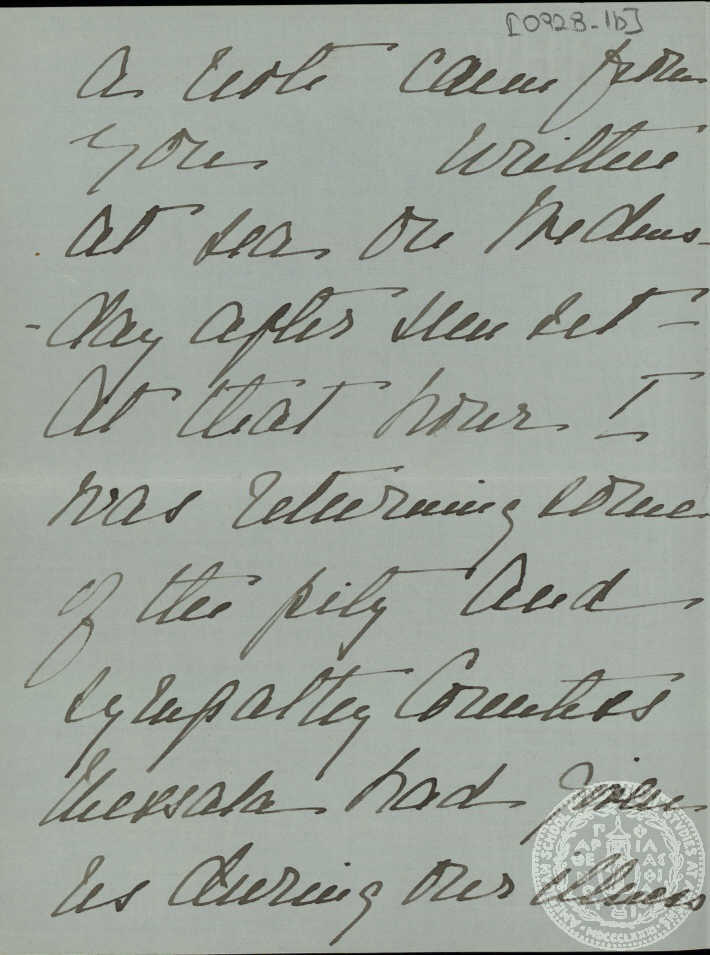 [0928-1b]
A note came from
you written
at sea on Wednes-
-day after sun set -
At that hour I
was returning some
of the pity and
sympathy Countess
had given
us during our illness